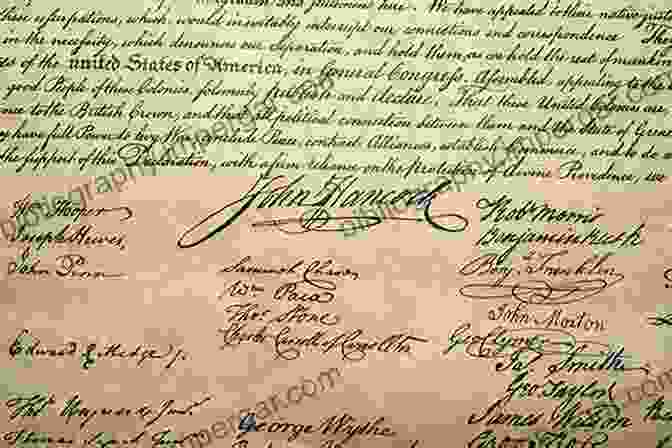 migration and settlement here. We have appealed to their native
these usurpations, which, would inevitably interrupt our connections and correspondence
in the necessity, which denounces our Separation, and hold them, as we hold the rest of mankind
es of the united States of America, in General Congress, Assembled, appealing to the
good People of these Colonies, solemnly publish and declare, That these United Colonies are
nce to the British Crown, and that all political connection between them and the State of Grea
y have full Power to levy War, conclude Peace, contract Alliances, establish Commerce, and to do
the support of this Declaration, with a firm reliance on the protection of divine Providence, we
John Hancock
Wm Hooper
Joseph Hewes,
John Penn
Edward Rutledge Jr.
Thos. Heyward Junr.
Thomas Lynch Junr.
Samuel Chase
Wm. Paca
Thos. Stone
Charles Carroll of Carrollton
George Wythe
Robt. Morris
Benjamin Rush
Benj. Franklin
John Morton
Geo Clymer
Jas. Smith
Geo. Taylor
James Wilson